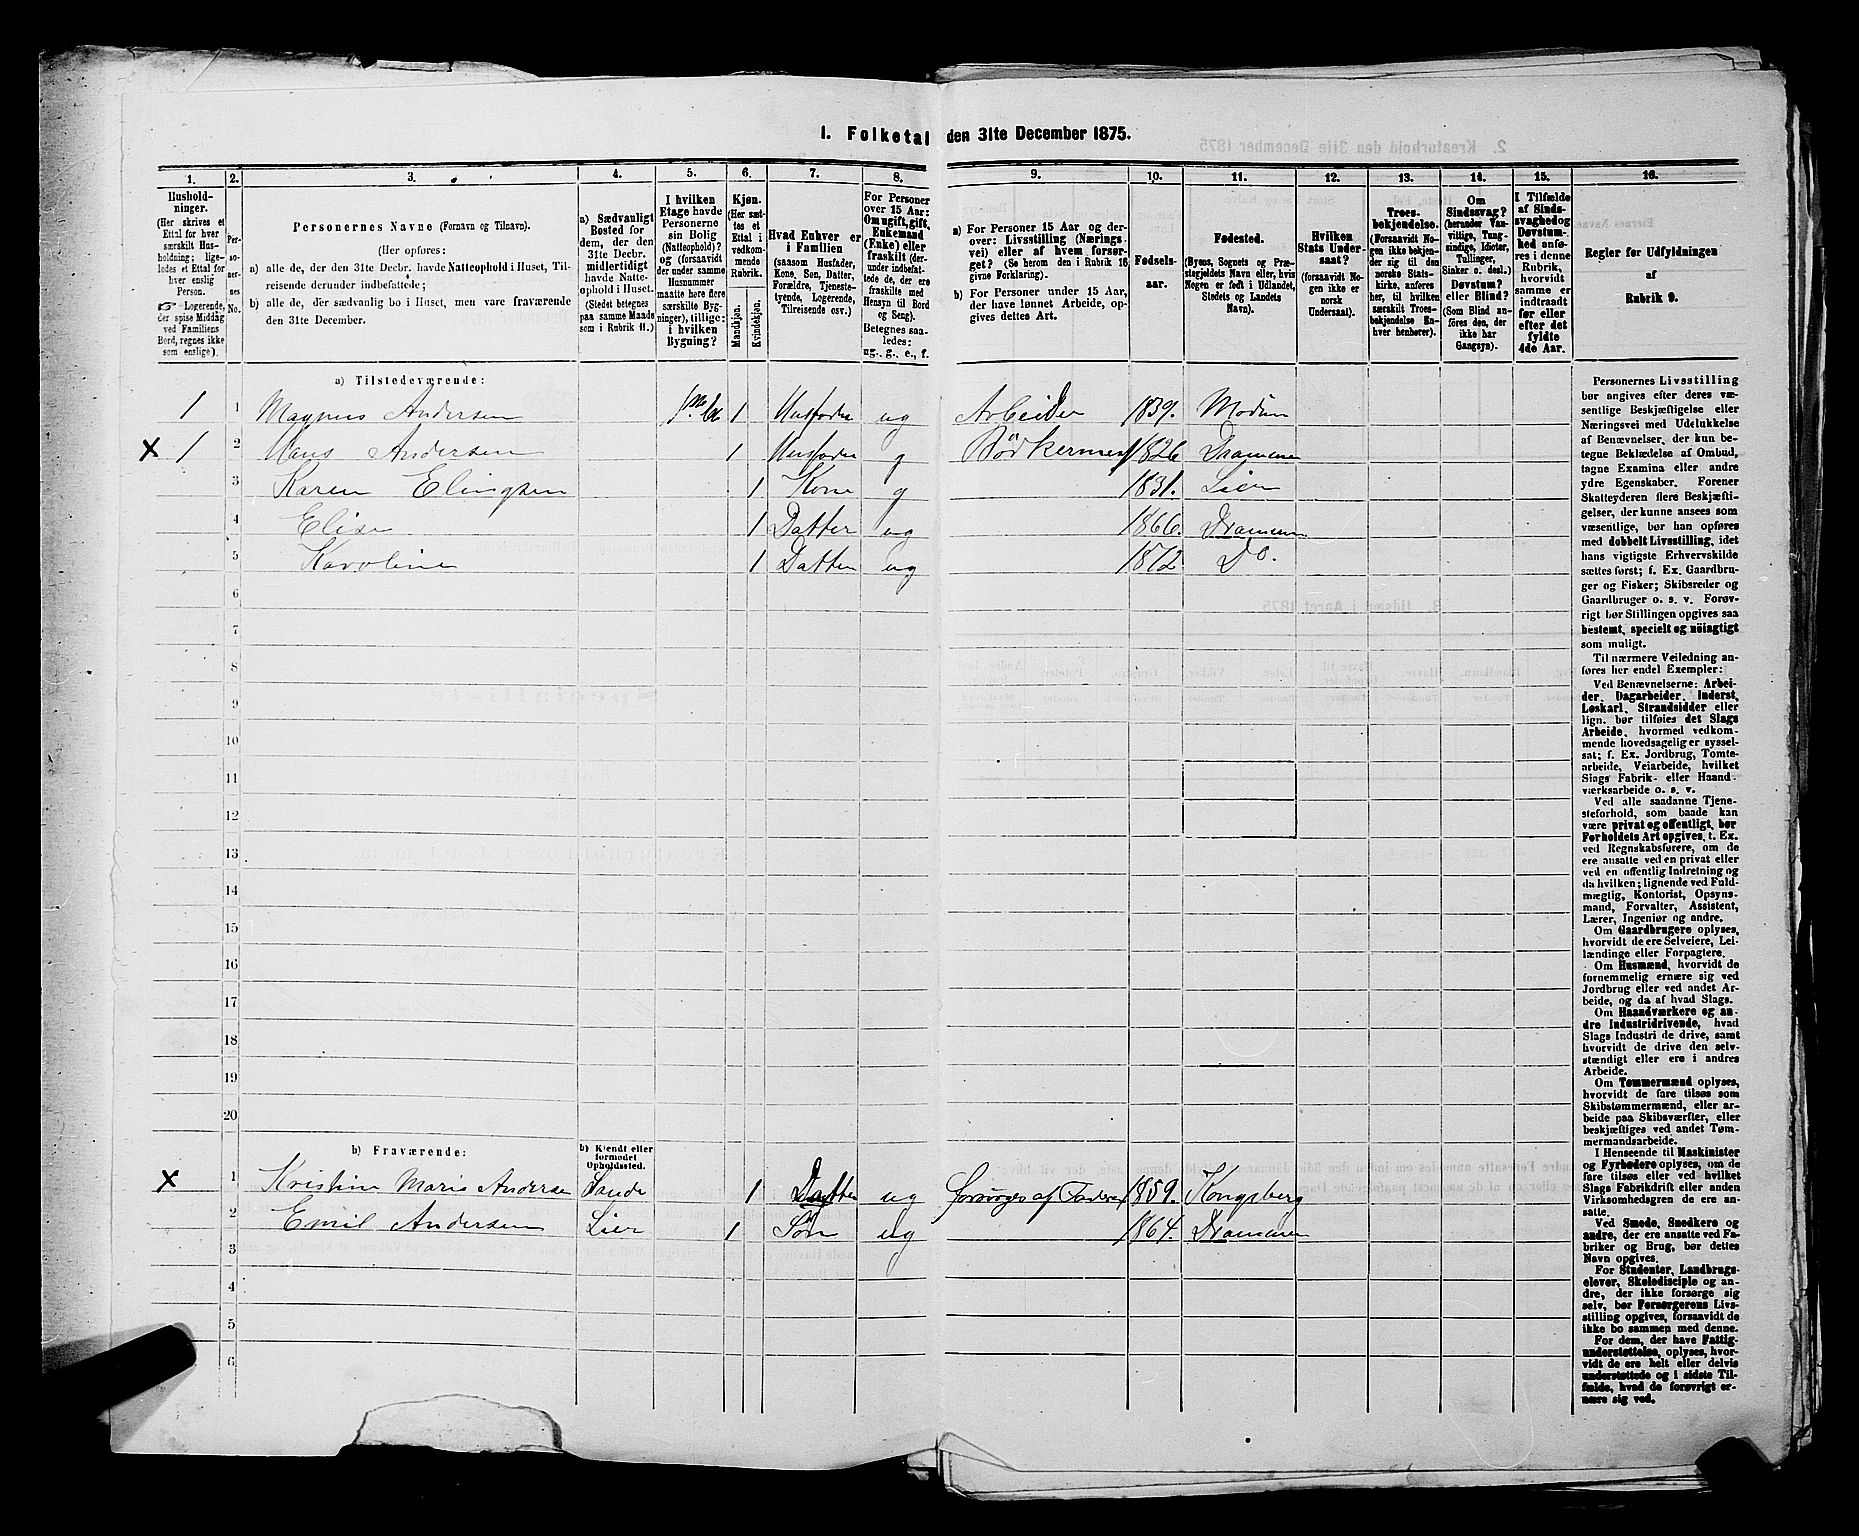 1. Folketal den 31te December 1875.
1. 2. 3. 4. 5. 6. 7. 8. 9. 10. 11. 12. 13. 14. 15. 16.
Hushold-
ninger.
(Her skrives et
Ettal for hver
særskilt Hus-
holdning; lige-
ledes et Ettal for
hver enslig
Person.
Logerende,
der spise Middag
ved Familiens
Bord, regnes ikke
som enslige).
Per-
so-
ner-
nes
No.
Personernes Navne (Fornavn og Tilnavn).
(Her opføres:
a) alle de, der den 31te Decbr. havde Natteophold i Huset, Til-
reisende derunder indbefattede;
b) alle de, der sædvanlig bo i Huset, men vare fraværende
den 31te December.
a) Sædvanligt
Bosted for
dem, der den
31te Decbr.
midlertidigt
havde Natte-
ophold i Huset.
(Stedet betegnes
paa samme Maade
som i Rubrik 11.)
I hvilken
Etage havde
Personerne
sin Bolig
(Natteophold)?
og (forsaavidt
der under samme
Husnummer
maatte høre flere
særskilte Byg-
ninger), tillige:
i hvilken
Bygning?
Kjøn.
(Her sæt-
tes et
Ettal i
vedkom-
mende
Rubrik.
Mandkjøn.
Kvindekjøn.
Hvad Enhver er
i Familien
(saasom Husfader,
Kone, Søn, Datter,
Forældre, Tjeneste-
tyende, Logerende,
Tilreisende osv.)
For Personer
over 15 Aar:
Om ugift, gift,
Enkemand
(Enke) eller
fraskilt (der-
under indbefat-
tede de, der ere
fraskilte med
Hensyn til Bord
og Seng).
Betegnes saa-
ledes:
ug., g., e., f.
a) For Personer 15 Aar og der-
over: Livsstilling (Nærings-
vei) eller af hvem forsør-
get? (Se herom den i Rubrik 16
givne Forklaring).
b) For Personer under 15 Aar,
der have lønnet Arbeide, op-
gives dettes Art.
Fødsels-
aar.
Fødested.
(Byens, Sognets og Præ-
stegjeldets Navn eller, hvis
Nogen er født i Udlandet,
Stedets og Landets
Navn).
Hvilken
Stats Under-
saat?
(forsaavidt No-
gen ikke er
norsk
Undersaat).
Troes-
bekjendelse.
(Forsaavidt No-
gen ikke bekjen-
der sig til den
norske Stats-
kirke, anføres
her, til hvilken
særskilt Troes-
bekjendelse En-
hver henhører).
Om
Sindssvag?
(herunder Van-
vittige, Tung-
sindige, Idioter,
Tullinger,
Sinker o. desl.)
Døvstum?
eller Blind?
(Som Blind an-
føres den, der
ikke har
Gangsyn).
I Tilfælde
af Sinds-
svaghed og
Døvstum-
hed anfø-
res i denne
Rubrik,
hvorvidt
samme er
indtraadt
før eller
efter det
fyldte
4de Aar.
Regler før Udfyldningen
af
Rubrik 9.
a) Tilstedeværende:
1 1 Magnus Andersen 1 Husfader ug Arbeider 1839. Modum
x 1 2 Hans Andersen 1 Husfader g Bødkermester 1826 Drammen
3 Karen Elingsen 1 Kone g 1831. Lier
4 Elise 1 Datter ug 1866. Drammen
5 Karoline 1 Datter ug 1872 Do.
6
7
8
9
10
11
12
13
14
15
16
17
18
19
20
b) Fraværende:
b) Kjendt eller
formodet
Opholdssted.
x 1 Kristine Marie Andersen Sande 1 Datter ug forsørges af Faderen 1859. Kongsberg
2 Emil Andersen Lier 1 Søn ug 1864. Drammen
3
4
5
6
Personernes Livsstilling
bør angives efter deres væ-
sentlige Beskjæftigelse eller
Næringsvei med Udelukkelse
af Benævnelser, der kun be-
tegne Beklædelse af Ombud,
tagne Examina eller andre
ydre Egenskaber. Forener
Skatteyderen flere Beskjæfti-
gelser, der kunne ansees som
væsentlige, bør han opføres
med dobbelt Livsstilling, idet
hans vigtigste Erhvervskilde
sættes først; f. Ex. Gaardbru-
ger og Fisker; Skibsreder og
Gaardbruger o. s. v. Forøv-
rigt bør Stillingen opgives saa
bestemt, specielt og nøiagtigt
som muligt.
Til nærmere Veiledning an-
føres her endel Exempler:
Ved Benævnelserne: Arbei-
der, Dagarbeider, Inderst,
Løskarl, Strandsidder eller
lign. bør tilføies det Slags
Arbeide, hvormed vedkom-
mende hovedsagelig er syssel-
sat; f. Ex. Jordbrug, Tomte-
arbeide, Veiarbeide, hvilket
Slags Fabrik- eller Haand-
værksarbeide o. s. v.
Ved alle saadanne Tjene-
steforhold, som baade kan
være privat og offentligt, bør
Forholdets Art opgives, t. Ex.
ved Regnskabsførere, om de
ere ansatte ved en privat eller
ved en offentlig Indretning og
da hvilken; lignende ved Fuld-
mægtig, Kontorist, Opsyns-
mand, Forvalter, Assistent,
Lærer, Ingeniør og andre.
Om Gaardbrugere oplyses,
hvorvidt de ere Selveiere, Lei-
lændinge eller Forpagtere.
Om Husmænd, hvorvidt de
fornemmelig ernære sig ved
Jordbrug eller ved andet Ar-
beide, og da af hvad Slags.
Om Haandværkere og an-
dre Industridrivende, hvad
Slags Industri de drive, samt
hvorvidt de drive den selv-
stændigt eller ere i andres
Arbeide.
Om Tømmermænd oplyses,
hvorvidt de fare tilsøs som
Skibstømmermænd, eller ar-
beide paa Skibsværfter, eller
beskjæftiges ved andet Tøm-
mermandsarbeide.
I Henseende til Maskinister
og Fyrbødere oplyses, om de
fare tilsøs eller ved hvilket
Slags Fabrikdrift eller anden
Virksomhedsgren de ere an-
satte.
Ved Smede, Snedkere og
andre, der ere ansatte ved Fa-
briker og Brug, bør dettes
Navn opgives.
For Studenter, Landbrugs-
elever, Skoledisciple og an-
dre, der ikke forsørge sig
selv, bør Forsørgerens Livs-
stilling opgives, forsaavidt de
ikke bo sammen med denne.
For dem, der have Fattig-
understøttelse, oplyses, hvor-
vidt de ere helt eller delvis
understøttede og i sidste Til-
fælde, hvad de forøvrigt er-
nære sig ved.